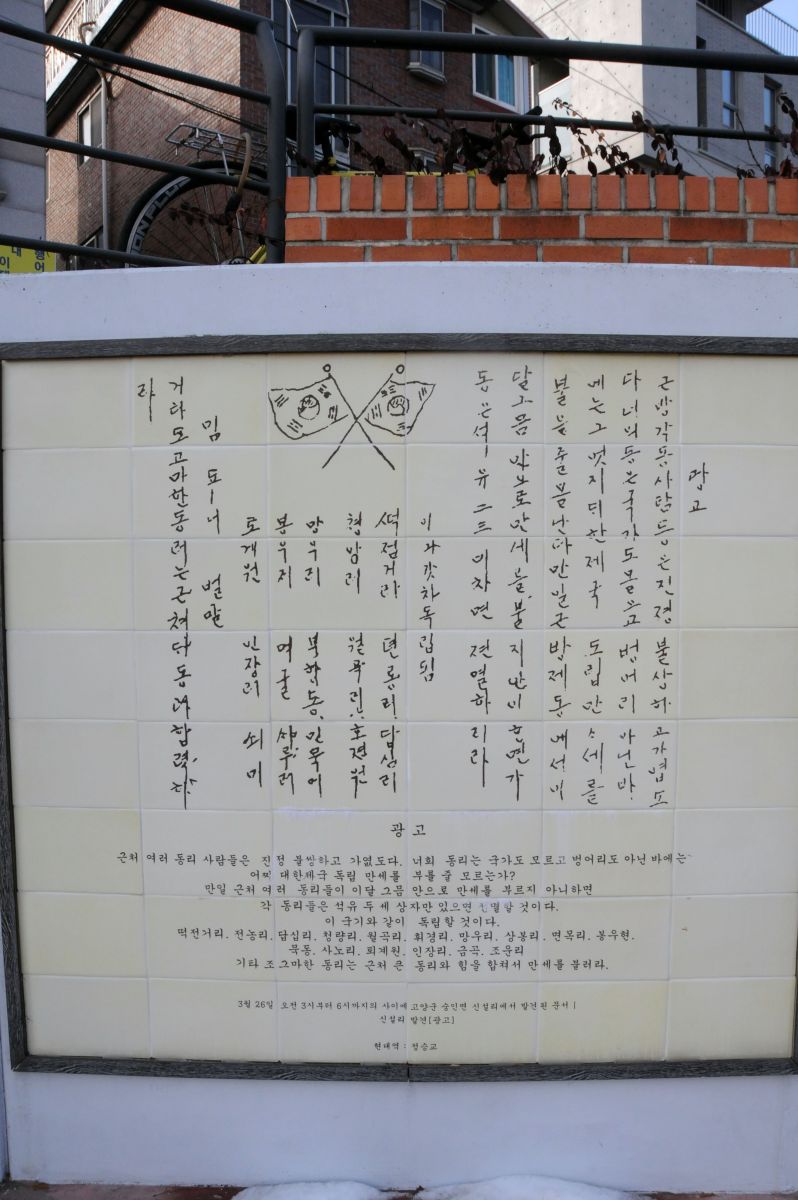 광고
근방각동사람등은진정 불상하고가엽도
다너의등은국가도몰으고 벙어리 아닌바
에는그 엇지대한제국 독립만세를
불을줄몰난다만일근방제동에서이
달그믐 안으로만세를불지안이하면가
동은석유 二三 전멸하리라
이와갓차독립됨
떡점거라 뎐롱리 답심리
월곡리
망우리
봉우지
토게원 인장리
벌말
거타도고마한동리는근쳐 합력하
라
광 고
근처 여러 동리 사람들은 진정 불쌍하고 가엾도다. 너희 동리는 국가도 모르고 벙어리도 아닌 바에는
어찌 대한제국 독립 만세를 부를 줄 모르는가?
만일 근처 여러 동리들이 이달 그믐 안으로 만세를 부르지 아니하면
각 동리들은 석유 두 세 상자만 있으면 전멸할 것이다.
이 국기와 같이 독립할 것이다.
떡전거리. 전농리. 답심리. 청량리. 월곡리. 휘경리. 망우리. 상봉리. 면목리. 봉우현.
묵동. 사노리. 퇴계원. 인장리. 금곡. 조운리
기타 조그마한 동리는 근처 큰 동리와 힘을 합쳐서 만세를 불러라.
3월 26일 오전 3시부터 6시까지의 사이에 고양군 숭인면 신설리에서 발견된 문서 |
신설리 발견[광고]
현대역 : 정승교